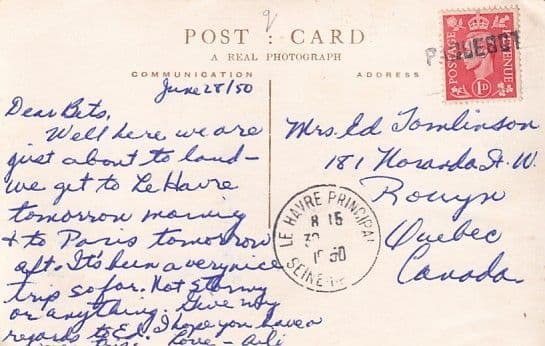 POST CARD
A REAL PHOTOGRAPH
COMMUNICATION
ADDRESS
June 28/50
Dear Bets,
Well here we are
just about to land –
we get to Le Havre
tomorrow morning
& to Paris tomorrow
aft. It's been a very nice
trip so far. Not stormy
or anything. Give my
regards to Ed. I hope you have a
Love –
Mrs. Ed Tomlinson
181 Noranda St. W.
Rouyn
Quebec
Canada
POSTAGE REVENUE
1D
PAQUEBOT
LE HAVRE PRINCIPAL
8 15
30
1950
SEINE